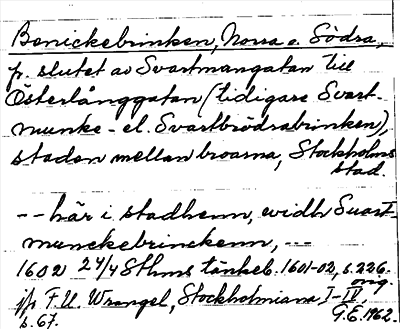 Benickebrinken, Norra o. Södra,
fr. slutet av Svartmangatan till
Österlånggatan (tidigare Svart-
munke- el. Svartbrödrabrinken),
staden mellan broarna, Stockholms
stad.
-- här i stadhenn, widh Suart-
munckebrinckenn, ---
1602 24/4 Sthms tänkeb. 1601-02, s. 226.
org.
jfr F.U. Wrangel, Stockholmiana I-IV,
s. 67.
G.E. 1962.